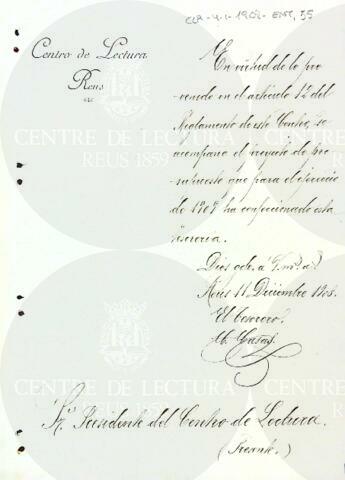 CLR-4.1-1908-ENT, 55
Centro de Lectura
Reus
En virtud de lo pre
venido en el artículo 12 del
Reglamento de este Centro, se
acompaña el proyecto de pre
supuesto que para el ejercicio
de 1909 ha confeccionado esta
tesorería.
Dios gde. á V. ms. a.s
Reus 11 Diciembre 1908.
El Tesorero.
Sr. Presidente del Centro de Lectura.
(Presente.)
CENTRE DE LECTURA
REUS 1859
CENTRE DE LECTURA
REUS 1859